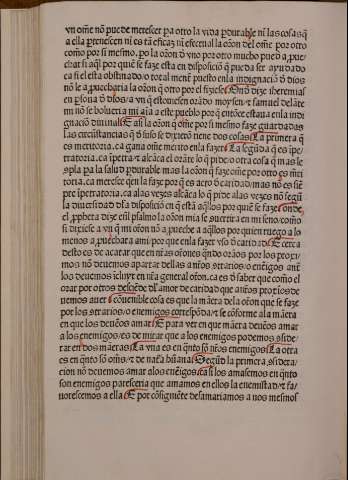 vn om̄e nō pue de merescer pa otro la vida pdurable ni las cosas q̄
a ella ꝑtenescen ni es tā eficaz ni esencial la oraōn del om̄e por otro
como por si mesmo. po la oraōn d̄ vno por otro mucho pue d̄ a ꝓue
char si aql̄ por quiē se faze esta en disposiciō q̄ pueda ser ayudado
ca si el esta obstinado o total menṫ puesto en la indignaciō d̄ dios
nō le a ꝓuecharia la oraōn q̄ otro por el fiziese. Onđ dize iheremias
en ꝑsona d̄ dios. a vn q̄ estouiesen orādo moysen ⁊ samuel delāte
mi nō se bolueria mi aīa a este pueblo por q̄ entōce estaua en la indi
gnaciō diuinal. E asi la oraōn q̄ om̄e por si mesmo faze guardadas
las circūstancias q̄ de suso se dixierō tiene dos cosas. La primera q̄
es meritoria. ca gana om̄e merito en la fazer. La segūda q̄ es īpe
tratoria. ca īpetra ⁊ alcāça el orāte lo q̄ pide o otra cosa q̄ mas le
sꝑla pa la salud ꝑdurable mas la oraōn q̄ faze om̄e por otro es meri
toria. ca meresce q̄en la faze por q̄ es acto d̄ caridad. mas nō es siē
pre īpetratoria. ca alas vezes alcāça lo q̄ pide alas vezes nō segū
la diuersidad dl̄a disposiciō en q̄ estā aq̄llos por quiē se faze. onde
el ꝓpheta dize enl̄ psalmo la oraōn mia se cuertira en mi seno. como
si dixiese a vn q̄ mi oraōn nō a ꝓueche a aq̄llos por quien ruego a lo
menos a ꝓuechara ami por que en la fazer vso d̄ caridad. E cerca
desto es de acatar que en n̄ras oraōnes q̄ndo orāos por los proxi
mos nō deuemos apartar dellas a n̄ros aduersarios o enemigos ante
los deuemos īcluyr en n̄ra general oraōn. ca es d̄ saber que comō el
orar por otros desciēde dl̄ amor de caridad que a n̄ros ꝓxīos de
uemos auer. conuenible cosa es que la maēra dela oraōn que se faze
por los aduersarios o enemigos correspōda ⁊ se cōforme al a maēra
en que los deuēos amar. E para ver en que maēra deuēos amar
a los enemigos. es de mirar que a los enemigos podemos cōside
rar en dos maēras. La vna es en q̄nto sō n̄ros enemigos. La otra
es en q̄nto son om̄s. ⁊ de nr̄a hūana. Segūd la primera cōsidera
cion nō deuemos amar a los enemigos. ca si los amasemos en q̄nto
son enemigos paresceria que amamos en ellos la enemistad. ⁊ fa
uorescemos a ella. E por cōsiguiēte desamariamos a nos mesmos